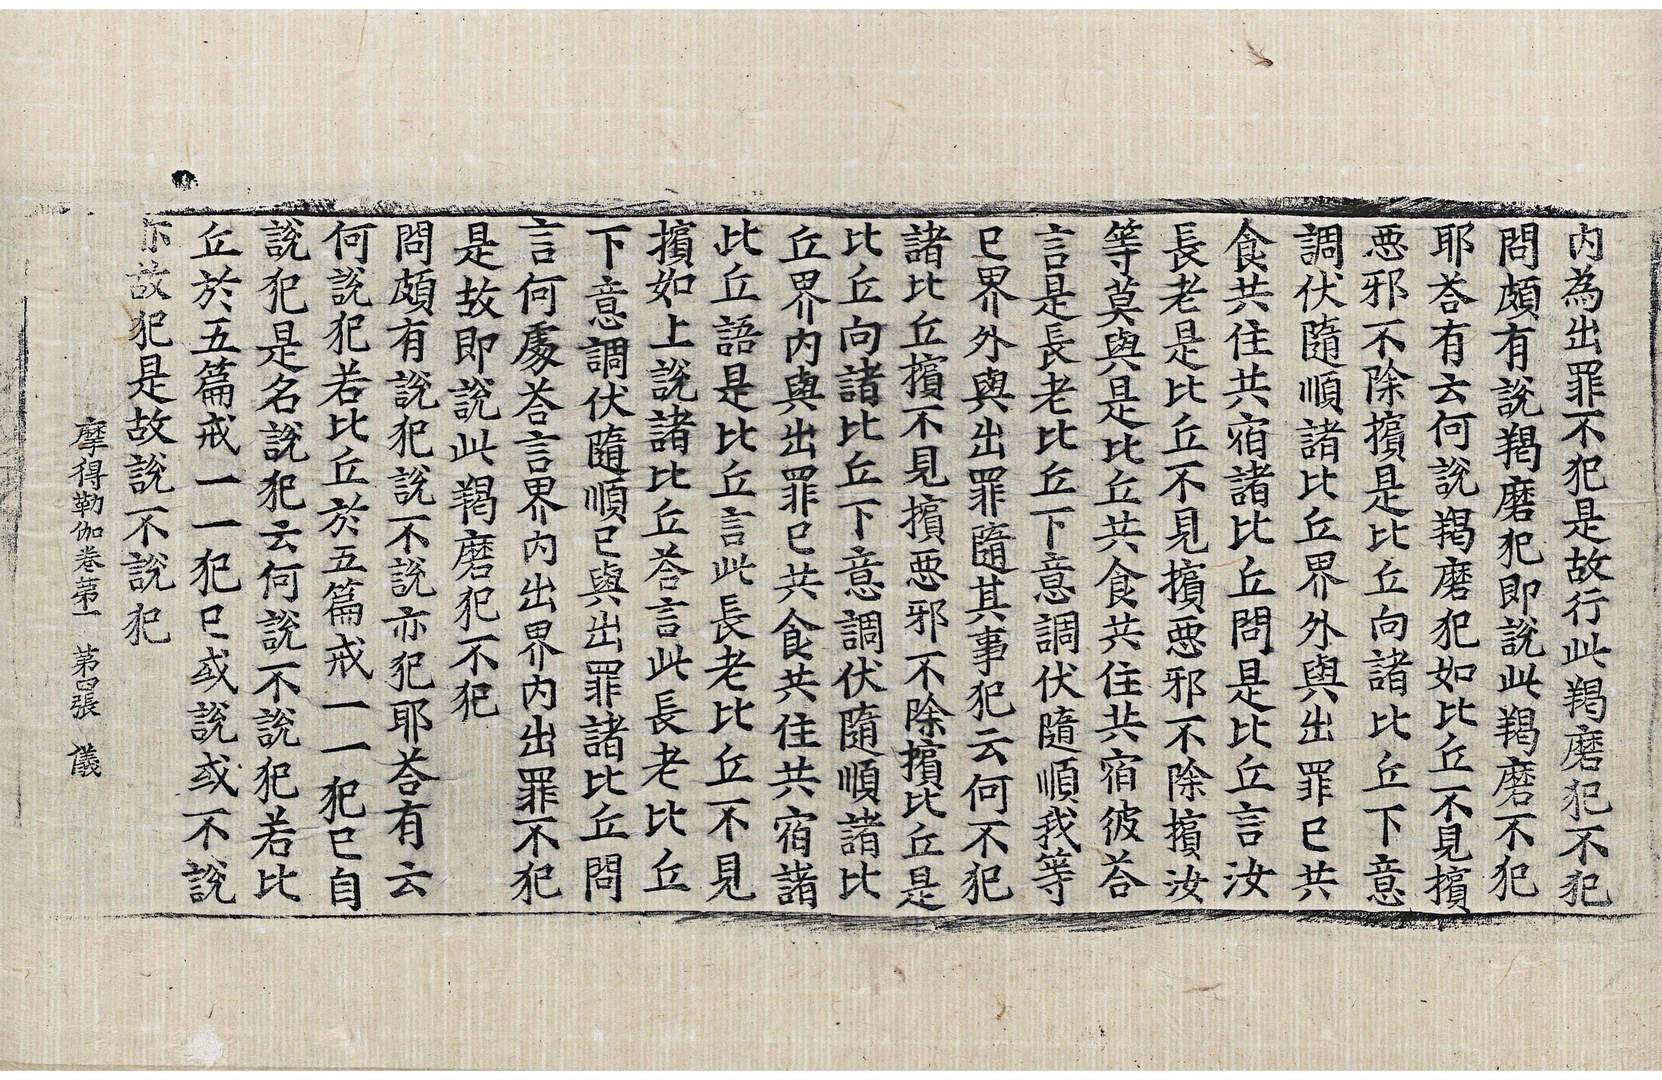 内為出罪不犯是故行此羯磨犯不犯
問頗有說羯磨犯即說此羯磨不犯
耶荅有云何說羯磨犯如比丘不見擯
惡邪不除擯是比丘向諸比丘下意
調伏隨順諸比丘界外與出罪已共
食共住共宿諸比丘問是比丘言汝
長老是比丘不見擯惡邪不除擯汝
等莫與是比丘共食共住共宿彼荅
言是長老比丘下意調伏隨順我等
已界外與出罪隨其事犯云何不犯
諸比丘擯不見擯惡邪不除擯比丘是
比丘向諸比丘下意調伏隨順諸比
丘界内與出罪已共食共住共宿諸
比丘語是比丘言此長老比丘不見
擯如上說諸比丘荅言此長老比丘
下意調伏隨順已與出罪諸比丘問
言何處荅言界内出界内出罪不犯
是故即說此羯磨犯不犯
問頗有說犯說不說亦犯耶荅有云
何說犯若比丘於五篇戒一一犯已自
說犯是名說犯云何說不說犯若比
丘於五篇戒一一犯已或說或不說
亦故犯是故說不說犯
摩得勒伽卷第一 第四張 儀